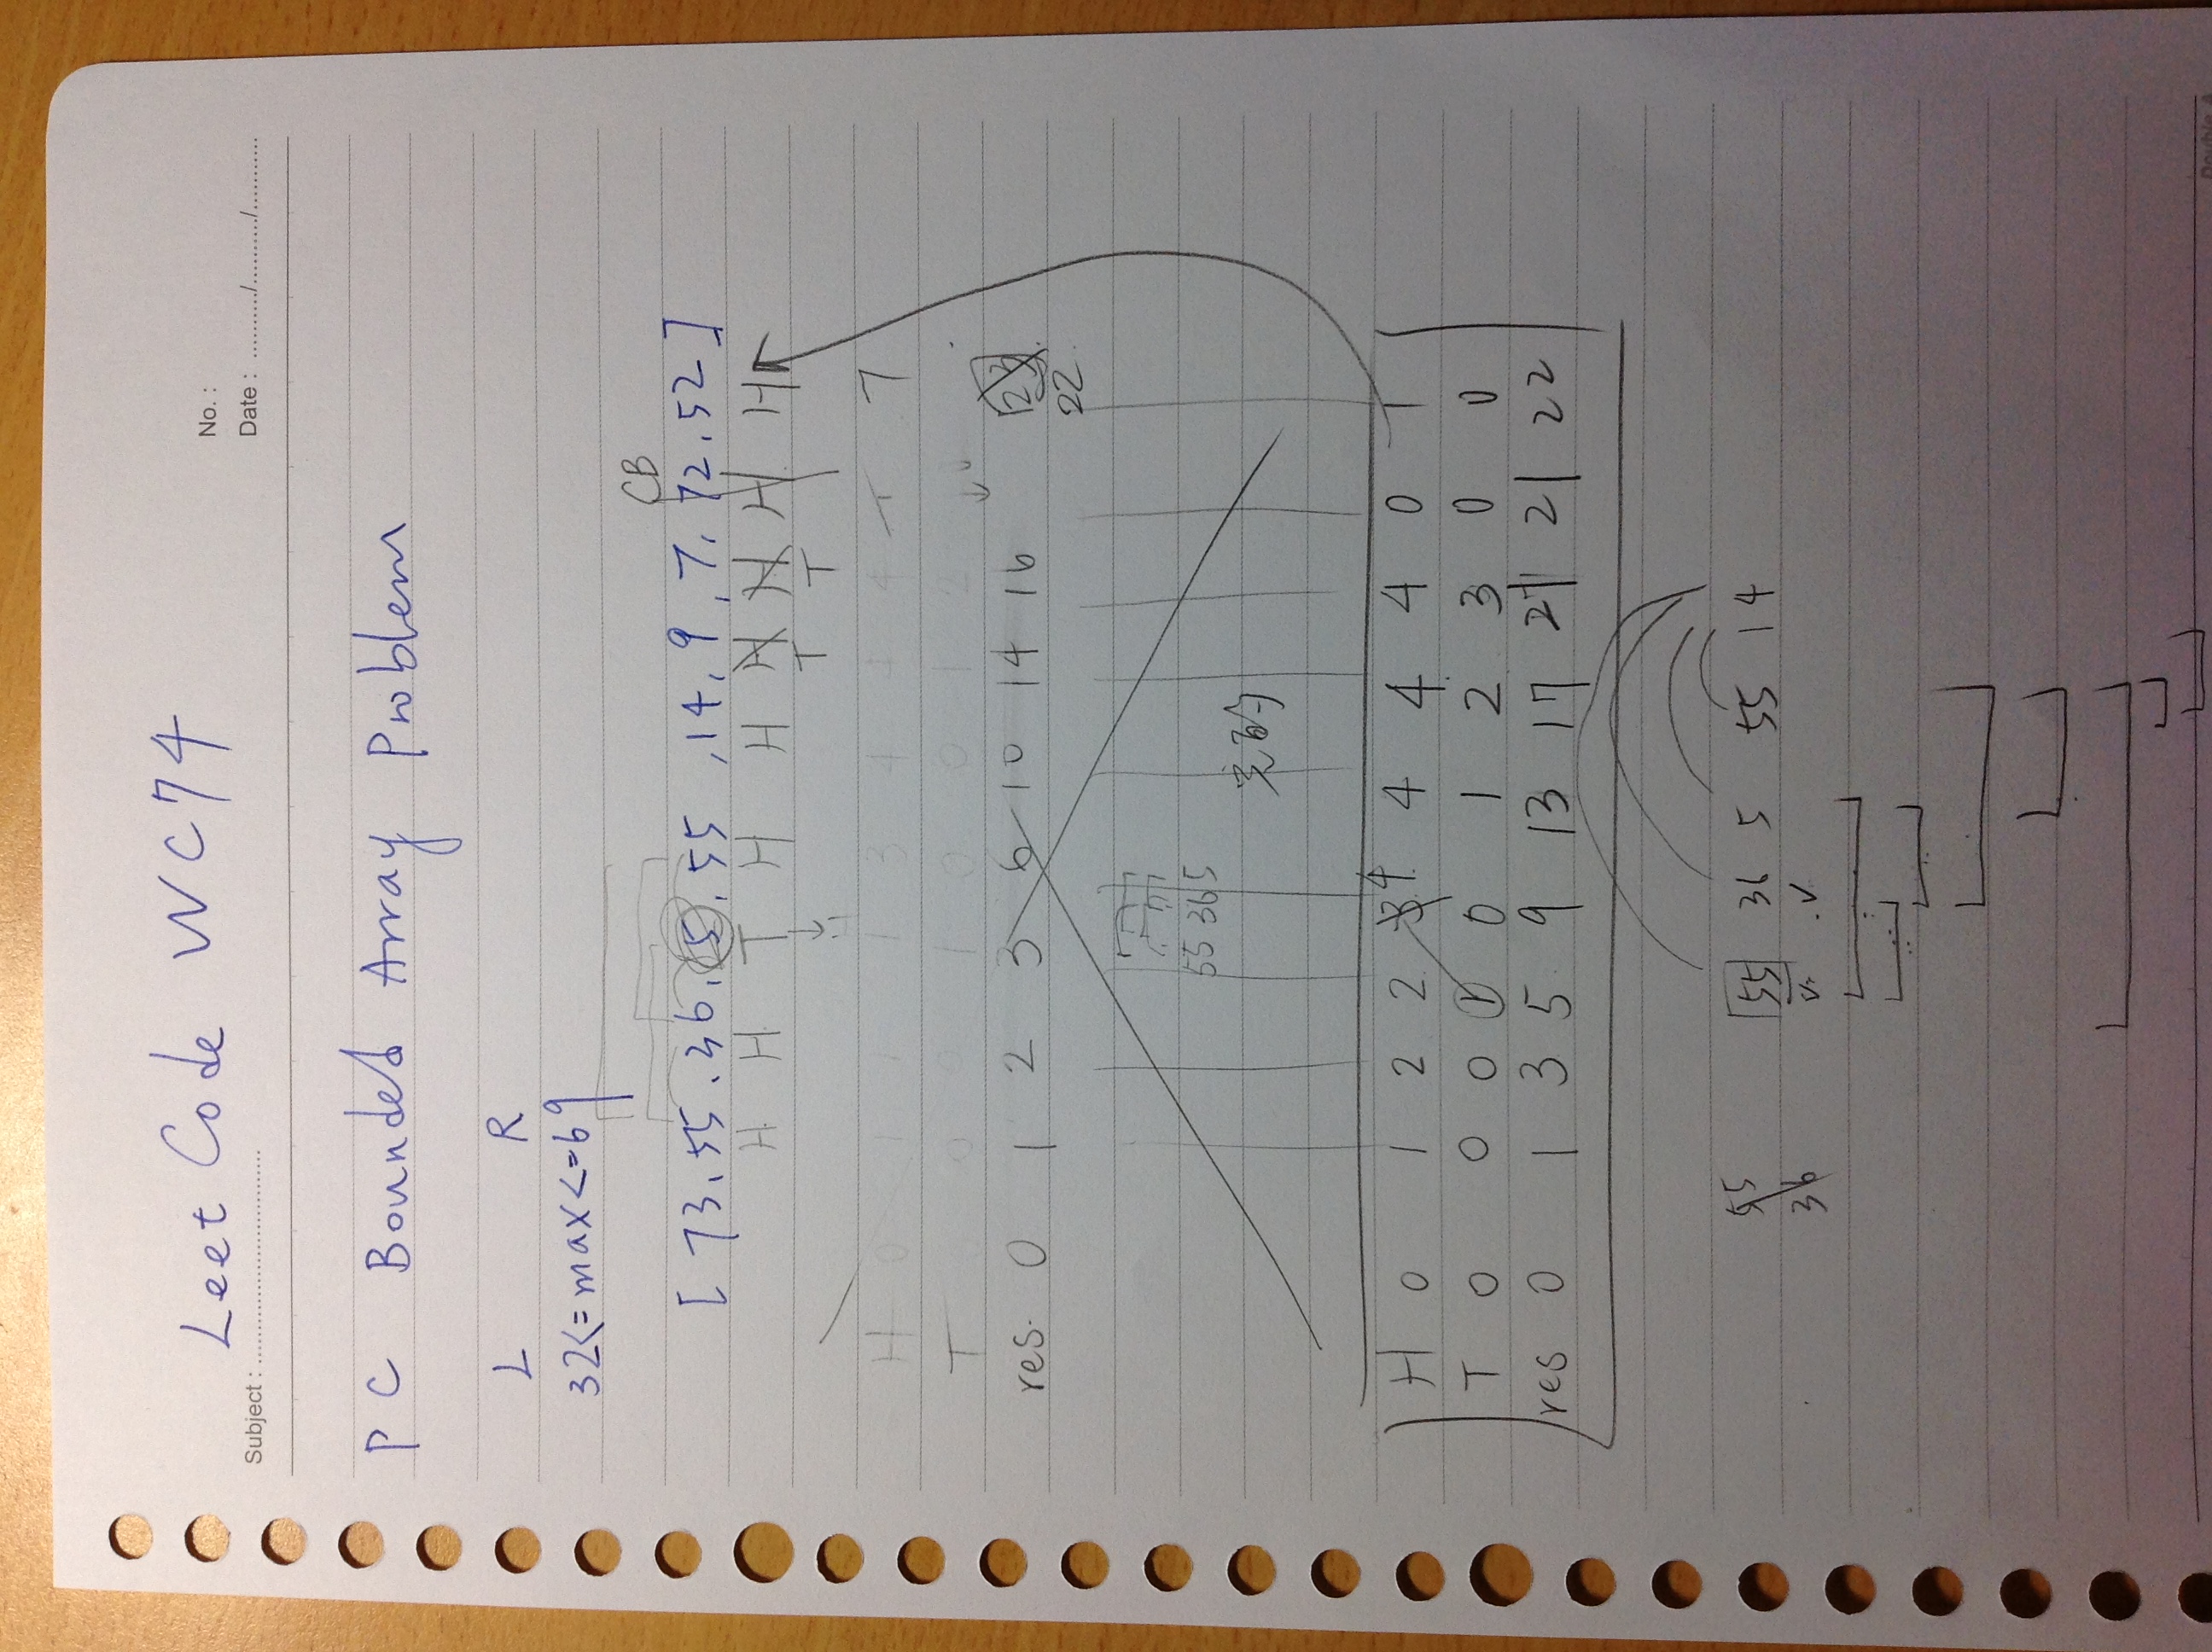 Leet Code WC74
No. :
Subject : ................................
Date : ........../........../...........
PC Bounded Array Problem
L R
32<=max<=69
CB
[ 73, 55, 36, 5, 55, 14, 9, 7, 72, 52 ]
H H T H H H H H H
T T
H
H 0 1 1 1 3 4 4 4 7
T 0 0 1 0 0 1 2
res. 0 1 2 3 6 10 14 16 23
22
55 36 5
H 0 1 2 2 3 4 4 4 4 0 1
T 0 0 0 1 0 1 2 3 0 0
res 0 1 3 5 9 13 17 21 21 22
55 55 36 5 55 14
36
Double A